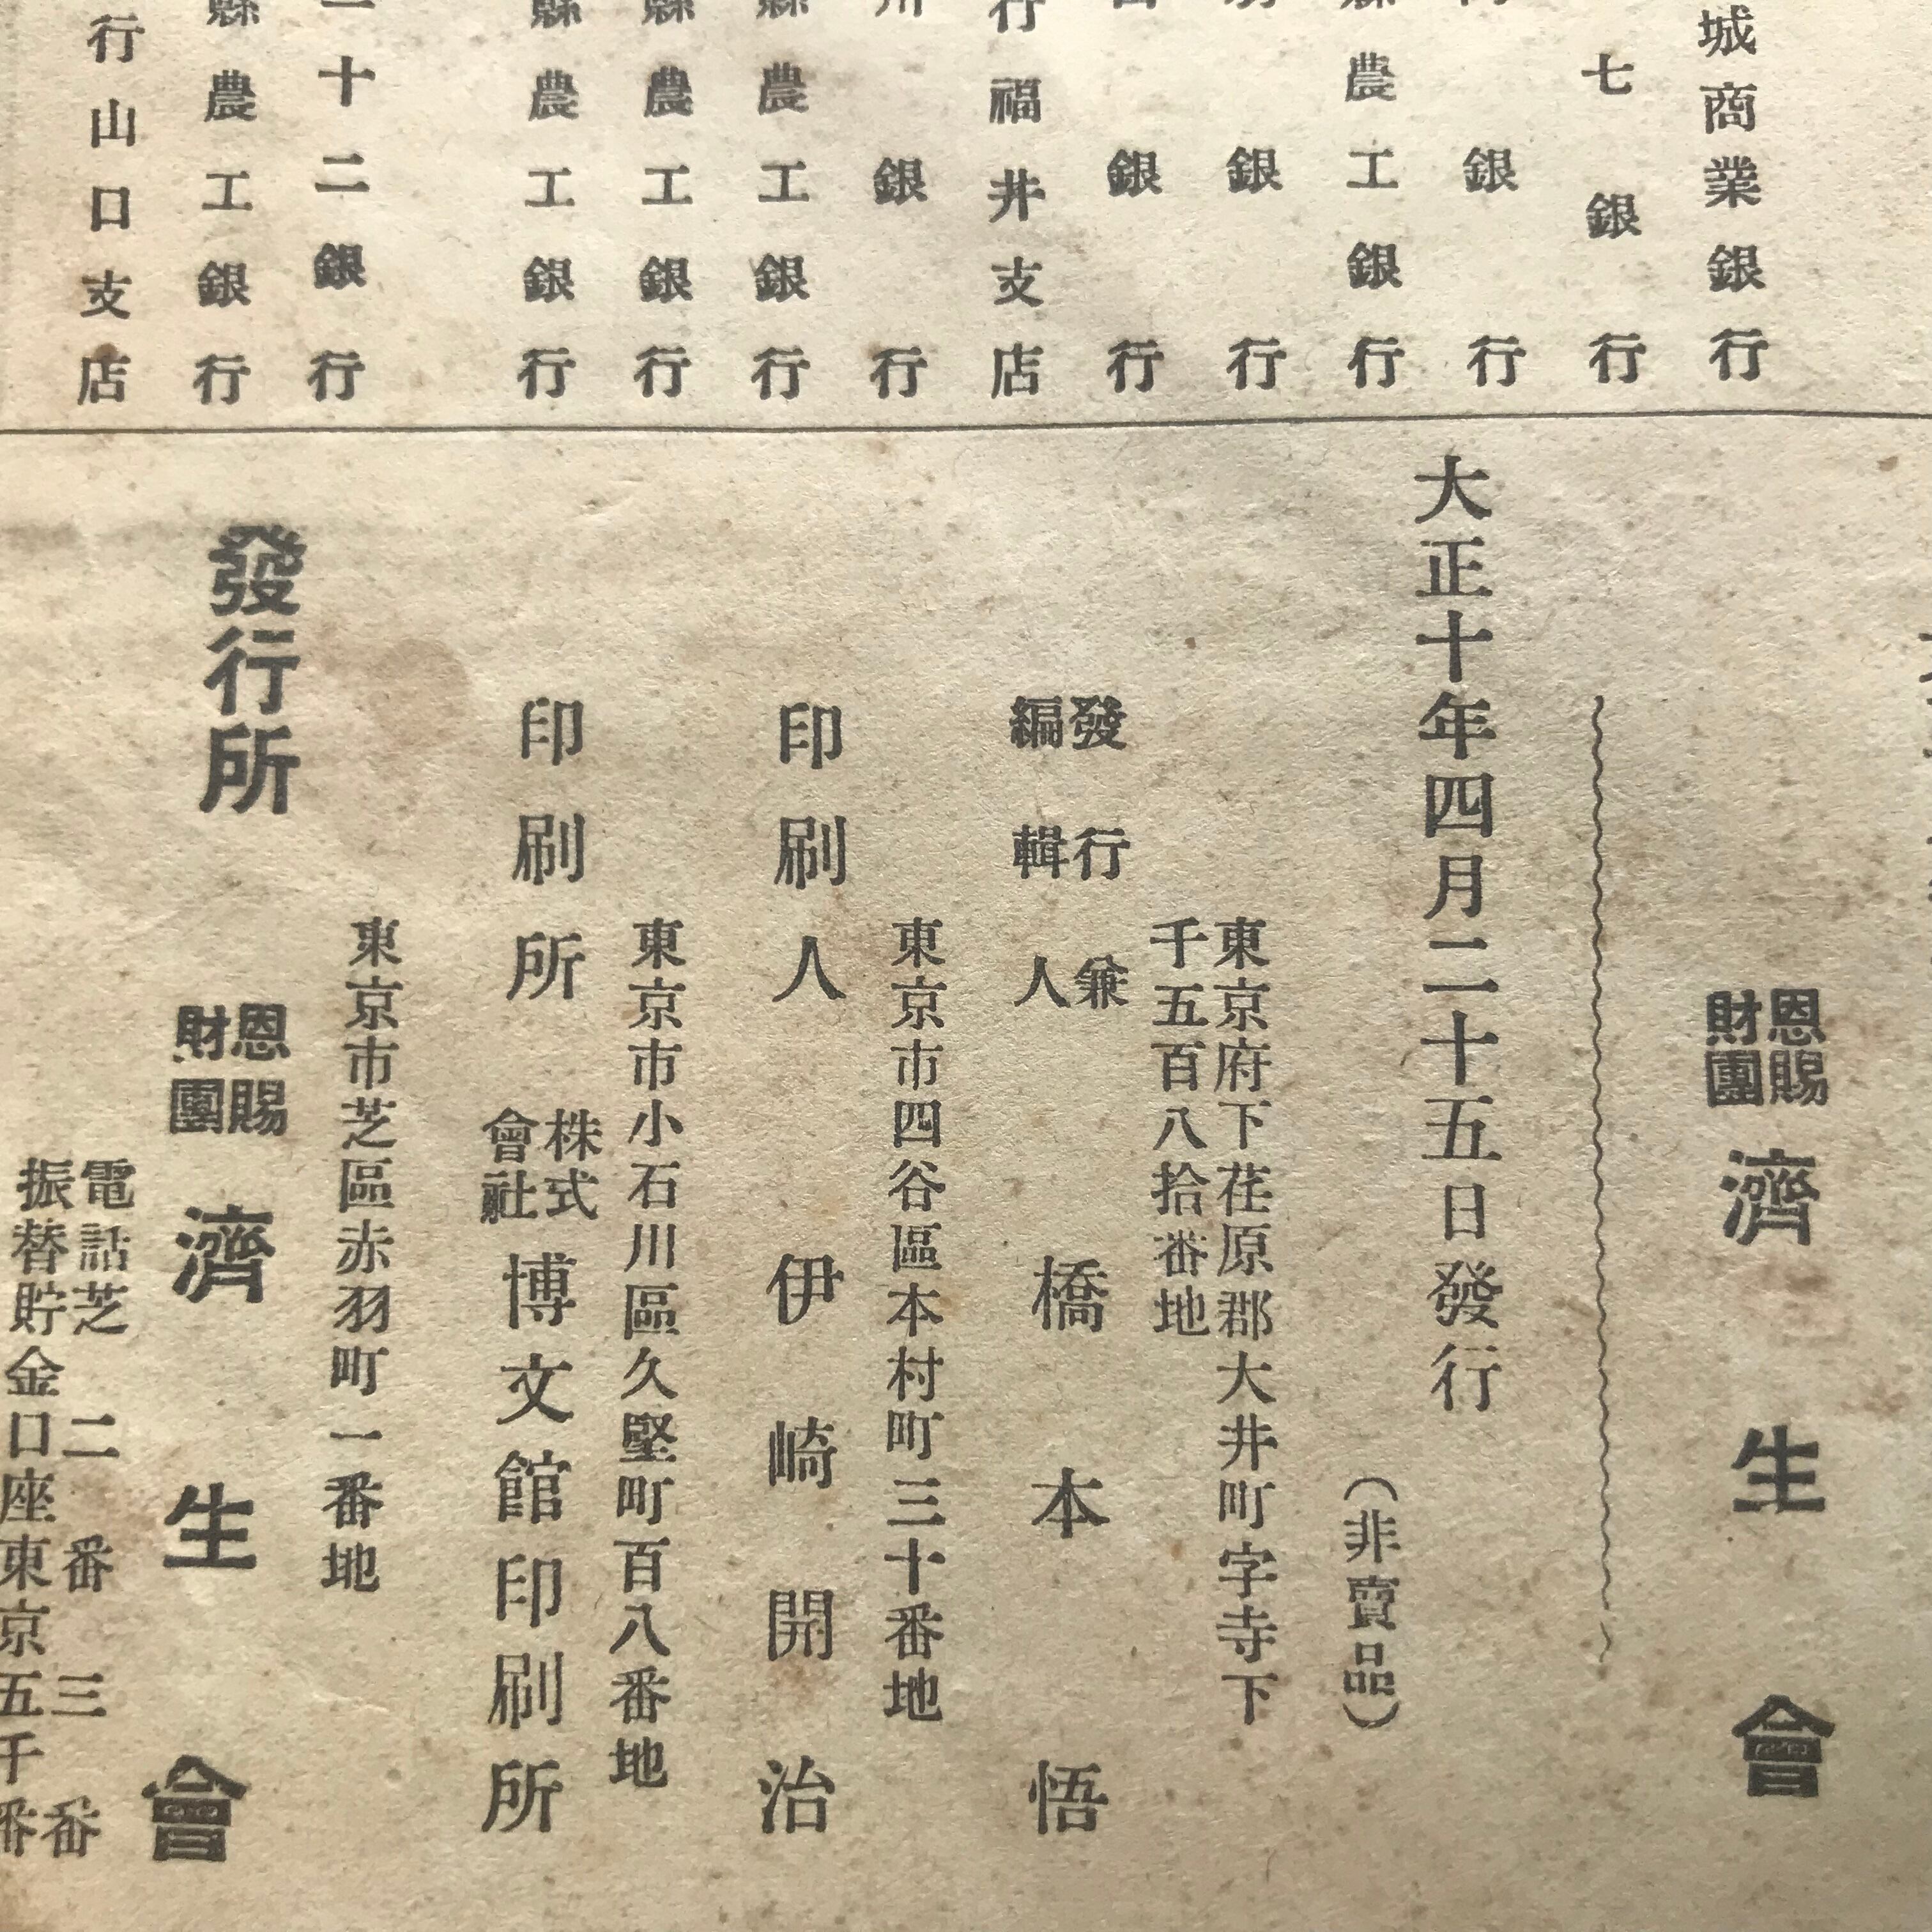 城商業銀行
七銀行
銀行
農工銀行
銀行
銀行
行福井支店
川銀行
縣農工銀行
縣農工銀行
縣農工銀行
十二銀行
縣農工銀行
行山口支店
恩賜
財團
濟生會
大正十年四月二十五日發行
(非賣品)
東京府下荏原郡大井町字寺下
千五百八拾番地
發行兼
編輯人
橋本悟
東京市四谷區本村町三十番地
印刷人 伊崎開治
東京市小石川區久堅町百八番地
印刷所
株式
會社
博文館印刷所
東京市芝區赤羽町一番地
發行所
恩賜
財團
濟生會
電話芝二番三番
振替貯金口座東京五千番